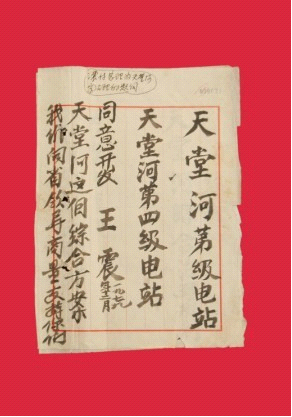 天堂河第级电站
天堂河第四级电站
同意开发
王震
一九七九年十二月
天堂河这個综合方案
我们向省领导商量支持你们